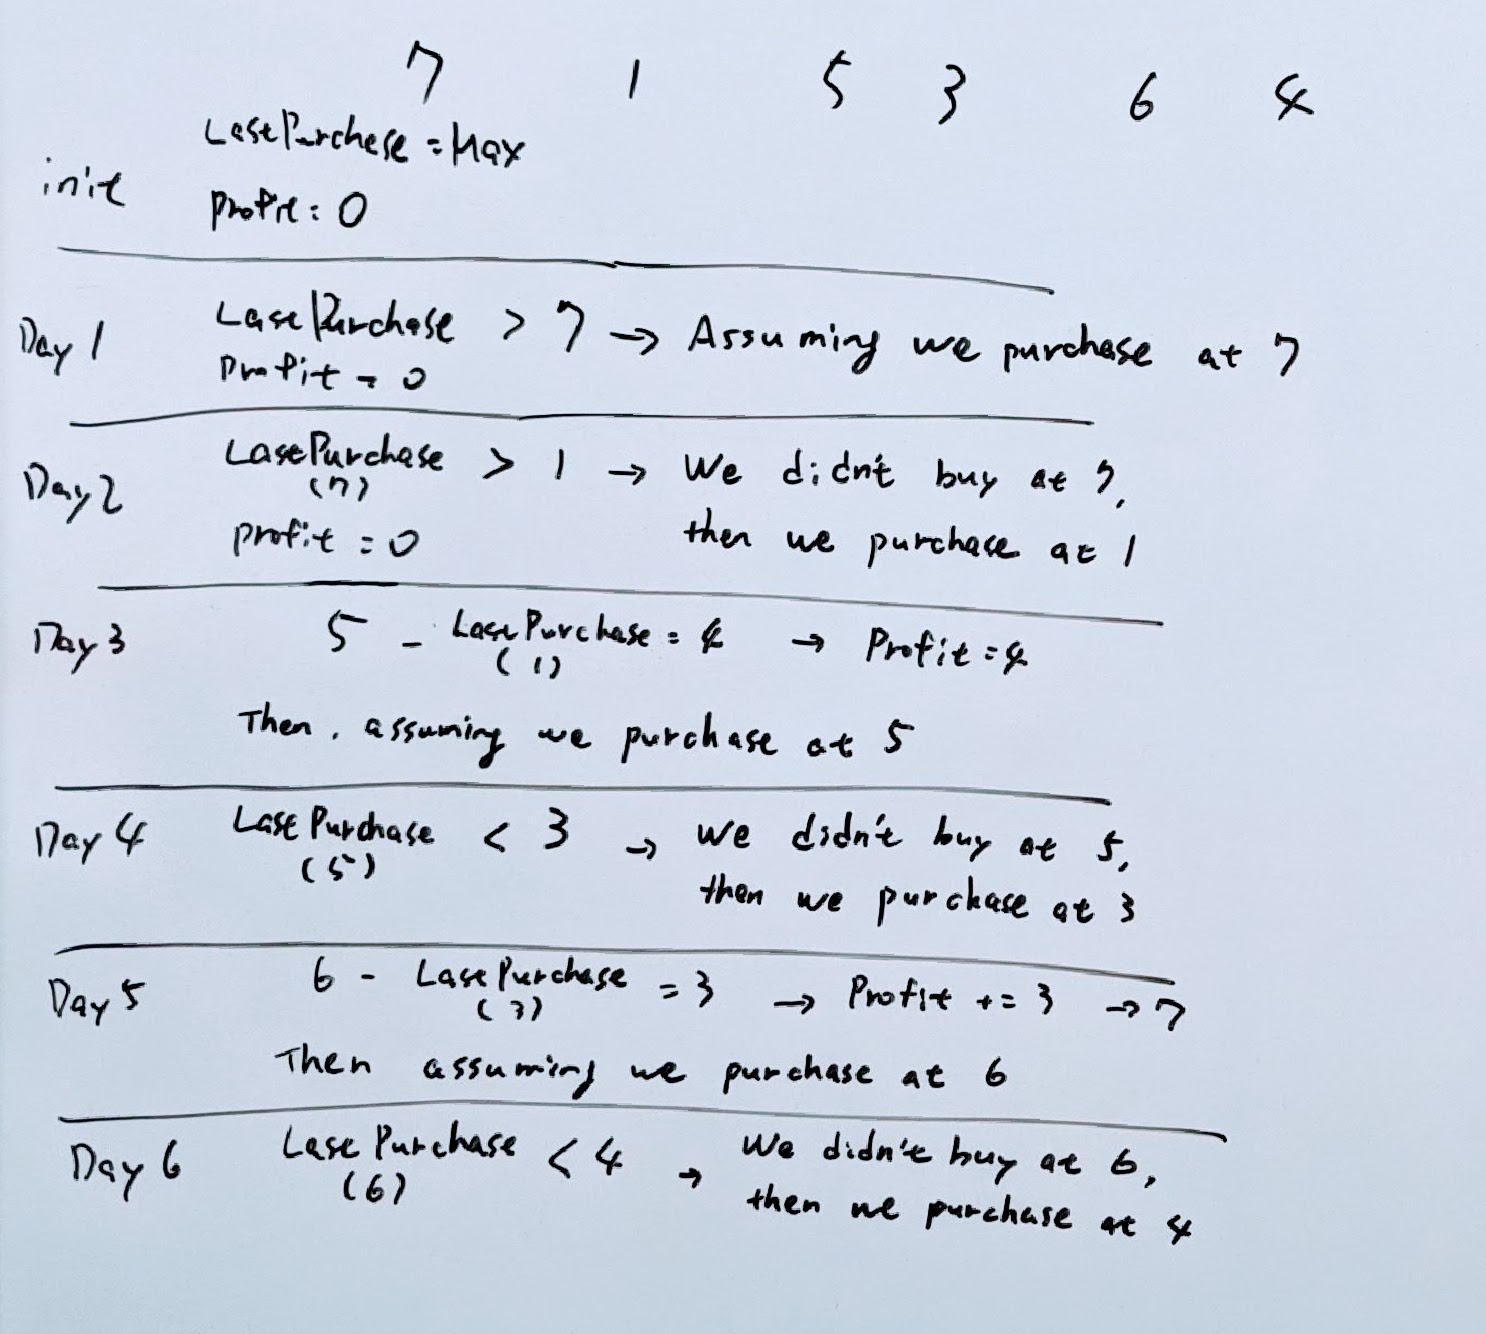 7 1 5 3 6 4
init LastPurchase = Max
profit = 0
Day 1 LastPurchase > 7 → Assuming we purchase at 7
Profit = 0
Day 2 LastPurchase > 1 → We didn't buy at 7,
(7) then we purchase at 1
profit = 0
Day 3 5 - LastPurchase = 4 → Profit = 4
(1)
Then, assuming we purchase at 5
Day 4 LastPurchase < 3 → we didn't buy at 5,
(5) then we purchase at 3
Day 5 6 - LastPurchase = 3 → Profit += 3 → 7
(3)
Then assuming we purchase at 6
Day 6 LastPurchase < 4 → We didn't buy at 6,
(6) then we purchase at 4